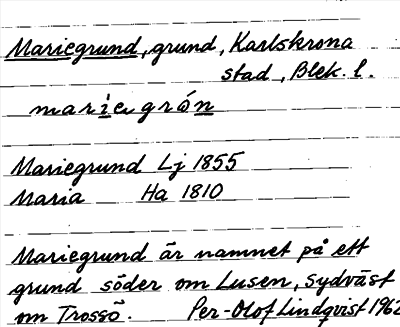 Mariegrund, grund, Karlskrona
stad, Blek. l.
marievgrón
Mariegrund Lj 1855
Maria Ha 1810
Mariegrund är namnet på ett
grund söder om Lusen, sydväst
om Trossö. Per-Olof Lindqvist 1962